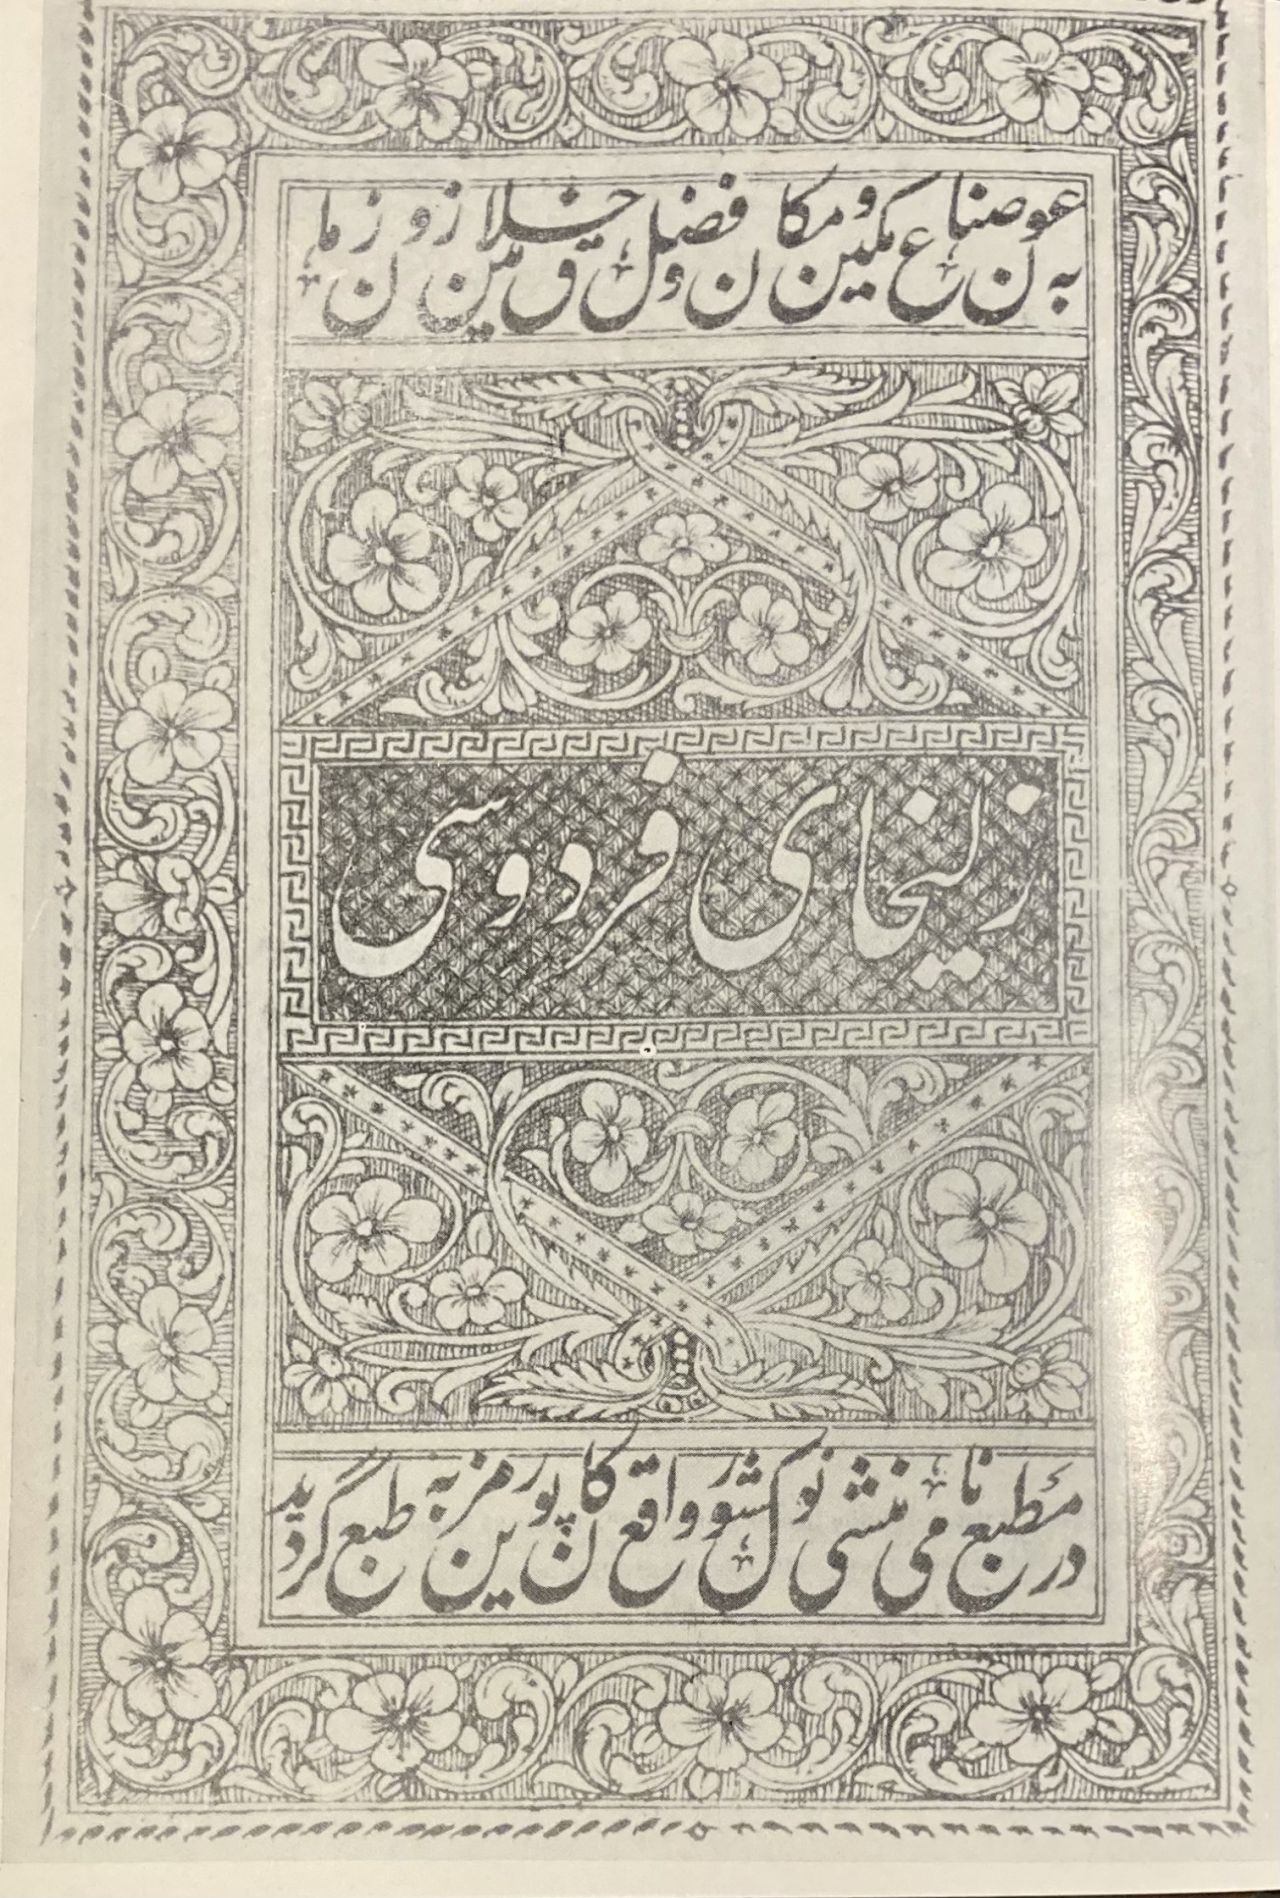 به عون صناع مکین و مکان و فضل خلاق زمین و زمان
زلیخای فردوسی
در مطبع نامی منشی نولکشور واقع کانپور مزین به طبع گردید